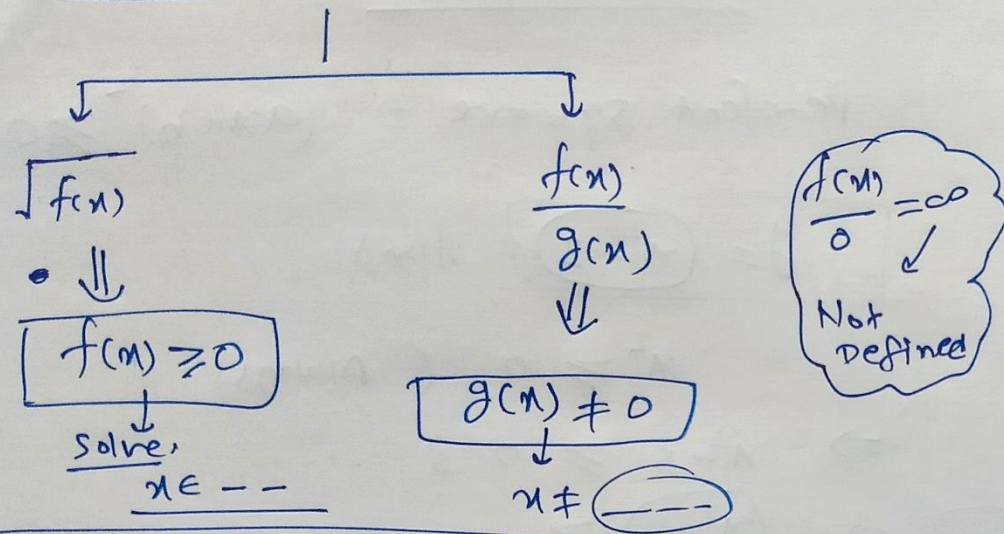 √f(x)
⇓
f(x) ≥ 0
↓
Solve,
x ∈ – –
f(x)
g(x)
⇓
g(x) ≠ 0
↓
x ≠ – – –
f(x)/0 = ∞
Not
Defined